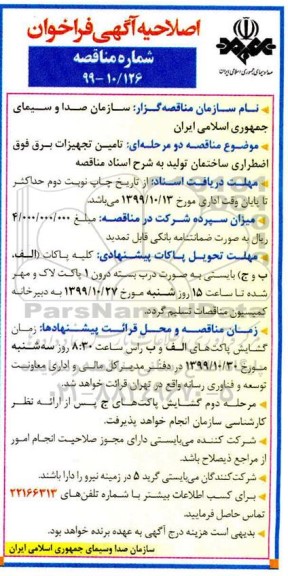 اصلاحیه آگهی فراخوان
شماره مناقصه
۹۹-۱۰/۱۲۶
صدا و سیمای جمهوری اسلامی ایران
نام سازمان مناقصه‌گزار: سازمان صدا و سیمای
جمهوری اسلامی ایران
موضوع مناقصه دو مرحله‌ای: تامین تجهیزات برق فوق
اضطراری ساختمان تولید به شرح اسناد مناقصه
مهلت دریافت اسناد: از تاریخ چاپ نوبت دوم حداکثر
تا پایان وقت اداری مورخ ۱۳۹۹/۱۰/۱۳ می‌باشد.
میزان سپرده شرکت در مناقصه: مبلغ ۴/۰۰۰/۰۰۰/۰۰۰
ریال به صورت ضمانتنامه بانکی قابل تمدید
مهلت تحویل پاکات پیشنهادی: کلیه پاکات (الف،
ب و ج) بایستی به صورت درب بسته درون ۱ پاکت لاک و مهر
شده تا ساعت ۱۵ روز شنبه مورخ ۱۳۹۹/۱۰/۲۷ به دبیرخانه
کمیسیون مناقصات تسلیم گردد.
زمان مناقصه و محل قرائت پیشنهادها: زمان
گشایش پاکت‌های الف و ب راس ساعت ۸:۳۰ روز سه‌شنبه
مورخ ۱۳۹۹/۱۰/۳۰ در دفتر مدیرکل مالی و اداری معاونت
توسعه و فناوری رسانه واقع در تهران قرائت خواهد شد.
مرحله دوم گشایش پاکت‌های ج پس از ارائه نظر
کارشناسی سازمان انجام خواهد پذیرفت.
شرکت کننده می‌بایستی دارای مجوز صلاحیت انجام امور
از مراجع ذیصلاح باشد.
شرکت‌کنندگان می‌بایستی گرید ۵ در زمینه نیرو را دارا باشند.
برای کسب اطلاعات بیشتر با شماره تلفن‌های ۲۲۱۶۶۳۱۳
تماس حاصل فرمایید.
بدیهی است هزینه درج آگهی به عهده برنده خواهد بود.
سازمان صدا وسیمای جمهوری اسلامی ایران